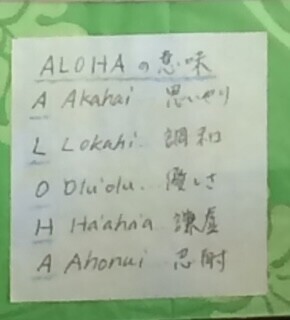 ALOHAの意味
A Akahai 思いやり
L Lokahi. 調和
O Olu'olu. 優しさ
H Ha'aha'a 謙虚
A Ahonui 忍耐